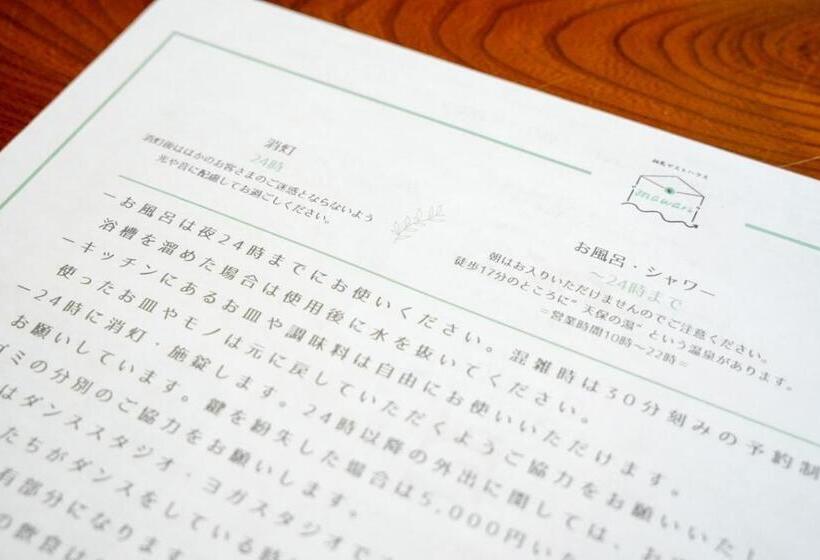 mawari
消灯
24時
消灯後はほかのお客さまのご迷惑とならないよう
光や音に配慮してお過ごしください。
お風呂・シャワー
〜24時まで
朝はお入りいただけませんのでご注意ください。
徒歩17分のところに"天保の湯"という温泉があります。
=営業時間10時〜22時=
ーお風呂は夜24時までにお使いください。混雑時は30分刻みの予約制
浴槽を溜めた場合は使用後に水を抜いてください。
ーキッチンにあるお皿や調味料は自由にお使いいただけます。
使ったお皿やモノは元に戻していただくようご協力をお願いいた
ー24時に消灯・施錠します。24時以降の外出に関しては、
お願いしています。鍵を紛失した場合は5,000円い
ゴミの分別のご協力をお願いします。
はダンススタジオ・ヨガスタジオで
たちがダンスをしている時
有部分になります
の飲食は